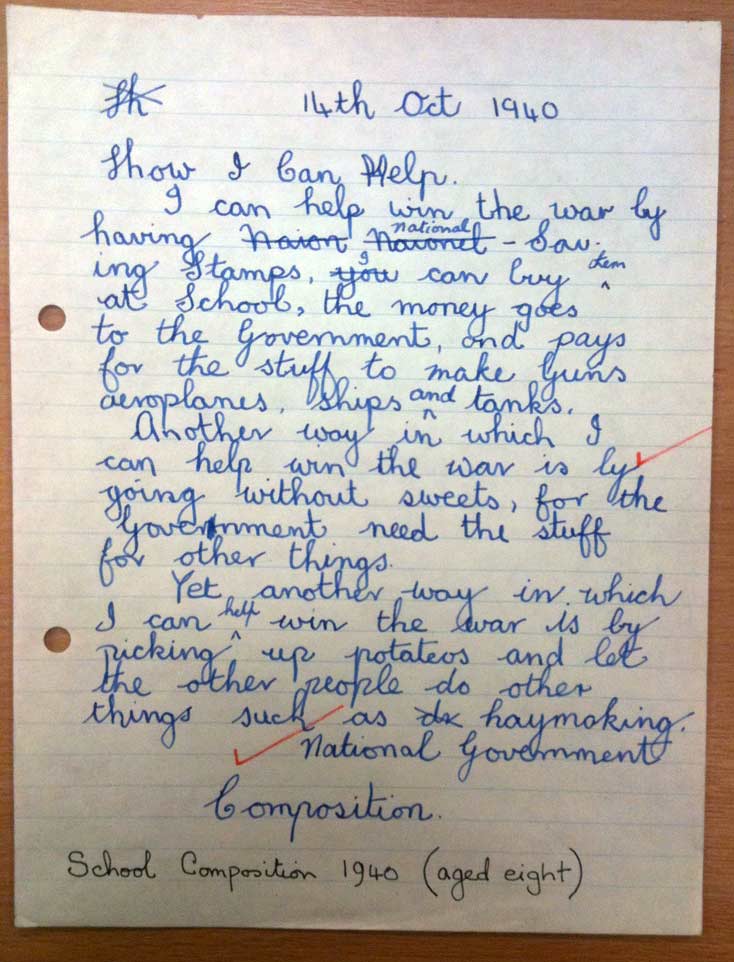 Sh 14th Oct 1940
Show I Can Help.
I can help win the war by
having Naion Navonel national - Sav-
ing Stamps, you I can buy them
at School, the money goes
to the Government, and pays
for the stuff to make Guns
aeroplanes, ships and tanks.
Another way in which I
can help win the war is by
going without sweets, for the
Government need the stuff
for other things.
Yet another way in which
I can help win the war is by
picking up potateos and let
the other people do other
things such as haymaking.
National Government
Composition.
School Composition 1940 (aged eight)